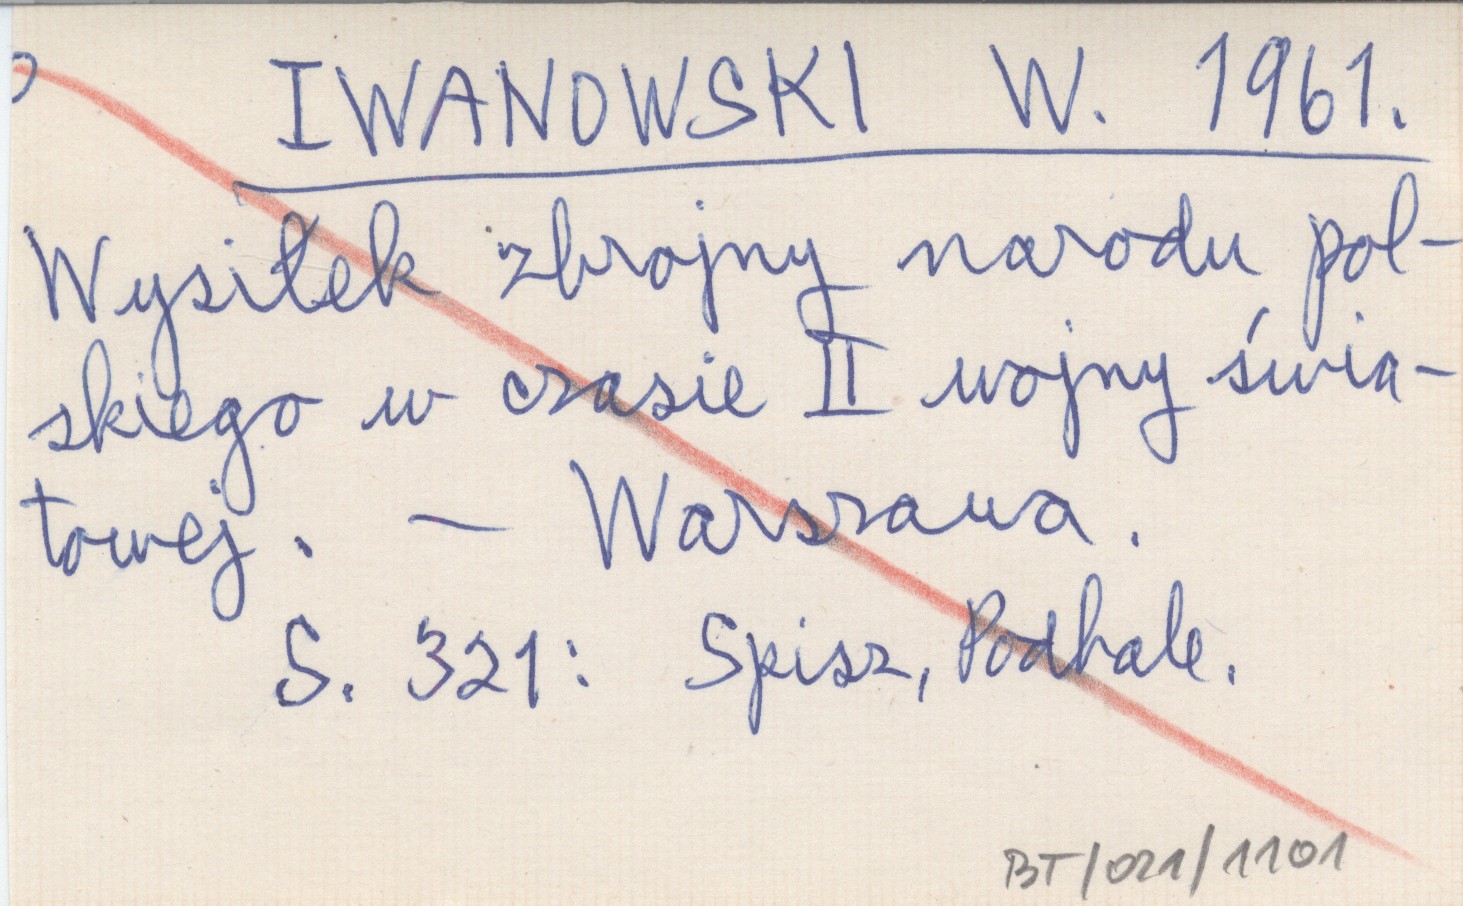 IWANOWSKI W. 1961.
Wysiłek zbrojny narodu pol-
skiego w czasie II wojny świa-
towej. — Warszawa.
S. 321: Spisz, Podhale.
BT/021/1101